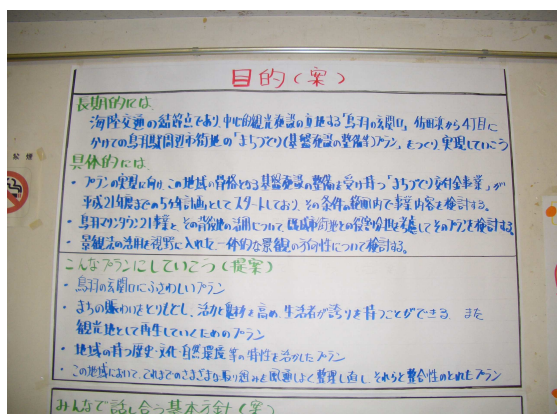 目的(案)
長期的には
海陸交通の結節点であり、中心的観光施設の立地する「鳥羽の玄関口」佐田浜から4丁目に
かけての鳥羽駅周辺市街地の「まちづくり(基盤施設の整備等)プラン」をつくり、実現していこう
具体的には
・プランの実現に向け、この地域の骨格となる基盤施設の整備を受け持つ「まちづくり交付金事業」が
平成21年度までの5ヶ年計画としてスタートしており、その条件の範囲内で事業内容を検討する。
・鳥羽マリンタウン21事業と、その背後地の活用について、既成市街地との役割分担を考慮してそのプランを検討する。
・景観法の活用を視野に入れた、一体的な景観の方向性について検討する。
こんなプランにしていこう(提案)
・鳥羽の玄関口にふさわしいプラン
・まちの賑わいをとりもどし、活力と魅力を高め、生活者が誇りを持つことができる、また
観光地として再生していくためのプラン
・地域の持つ歴史・文化・自然環境等の特性を活かしたプラン
・この地域において、これまでのさまざまな取り組みを風通しよく整理し直し、それらと整合性のとれたプラン
みんなで話し合う基本方針(案)
禁煙